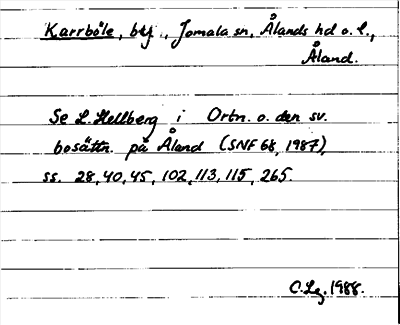 Karrböle, by, Jomala sn, Ålands hd o. l.,
Åland.
Se L. Hellberg i Ortn. o. den sv.
bosättn. på Åland (SNF 68, 1987),
ss. 28, 40, 45, 102, 113, 115, 265.
C.Lg. 1988.